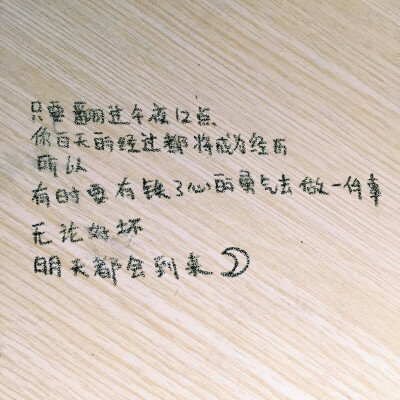 只要翻过午夜12点
你白天的经过都将成为经历
所以
有时要有铁了心的勇气去做一件事
无论好坏
明天都会到来